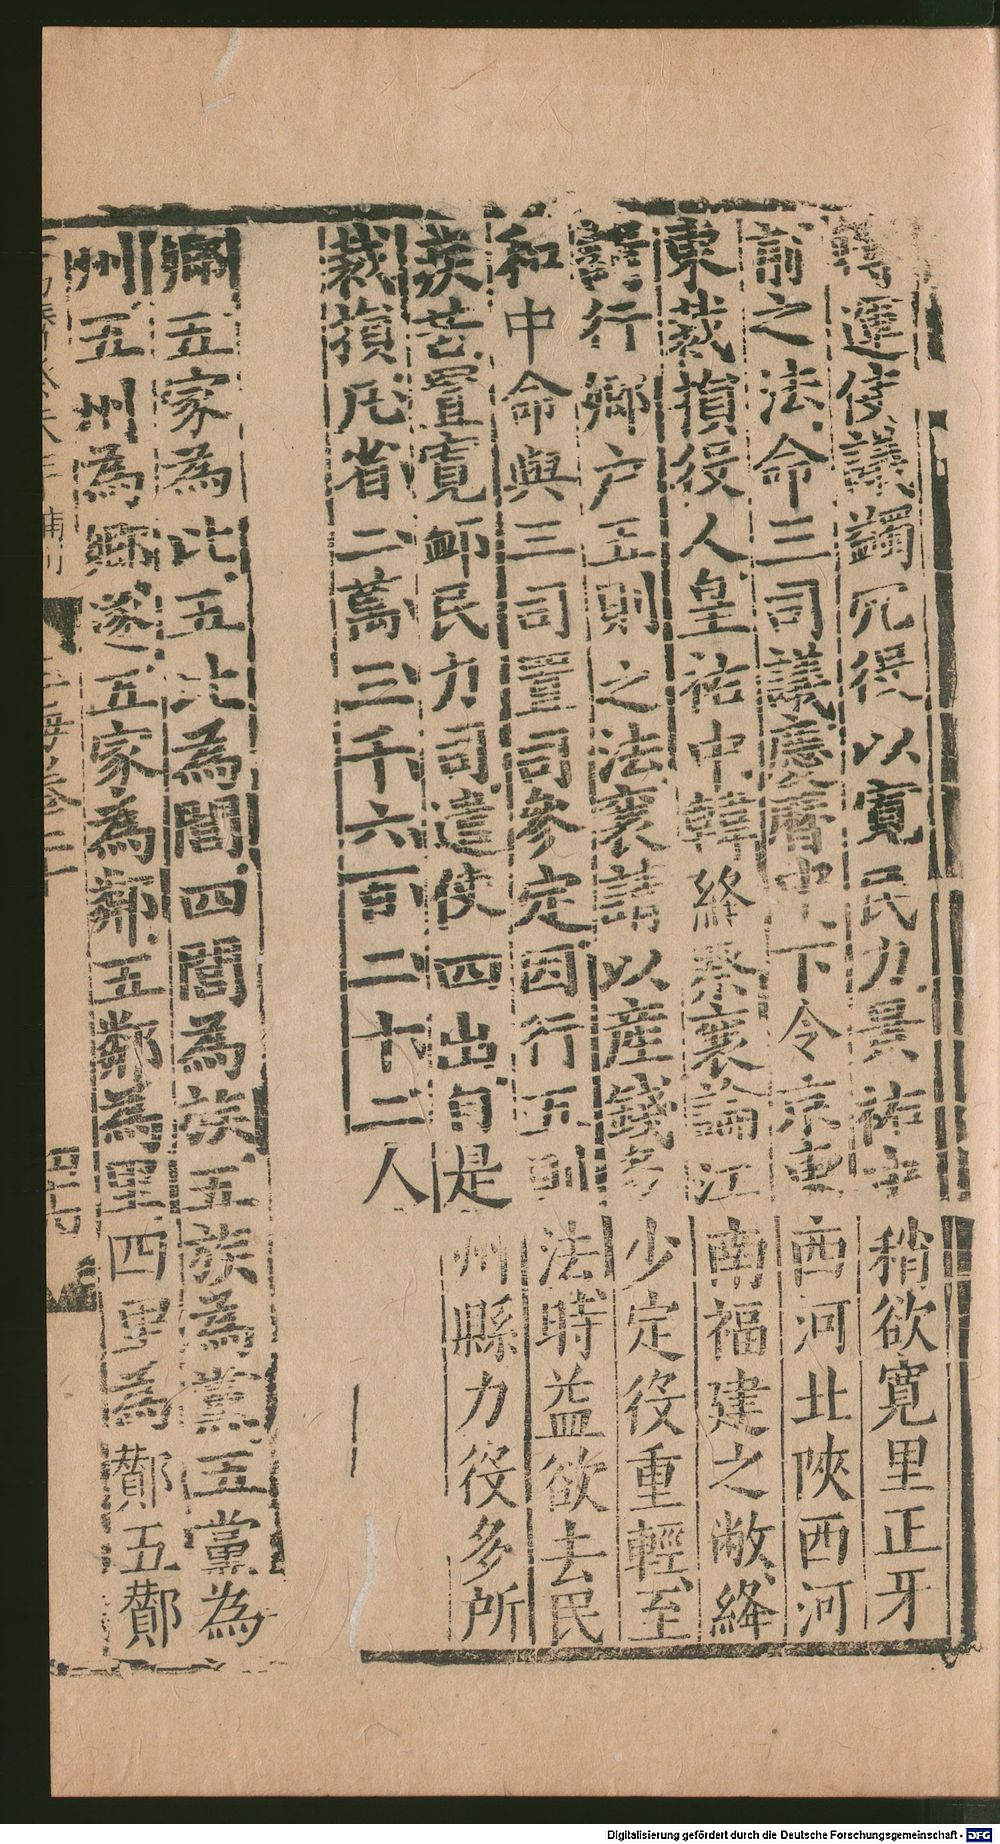 轉運使議蠲冗役以寬民力景祐中稍欲寬里正牙
前之法命三司議慶曆中下令京東西河北陜西河
東裁損役人皇祐中韓絳蔡襄論江南福建之敝絳
請行鄉户五則之法襄請以產錢多少定役重輕至
和中命與三司置司參定因行五則法時益欲去民
疾苦置寬卹民力司遣使四出自是州縣力役多所
裁損凡省二萬三千六百二十二人
鄉五家為比五比為閭四閭為族五族為黨五黨為
州五州為鄉遂五家為鄰五鄰為里四里為酇五酇
Digitalisierung gefördert durch die Deutsche Forschungsgemeinschaft - DFG